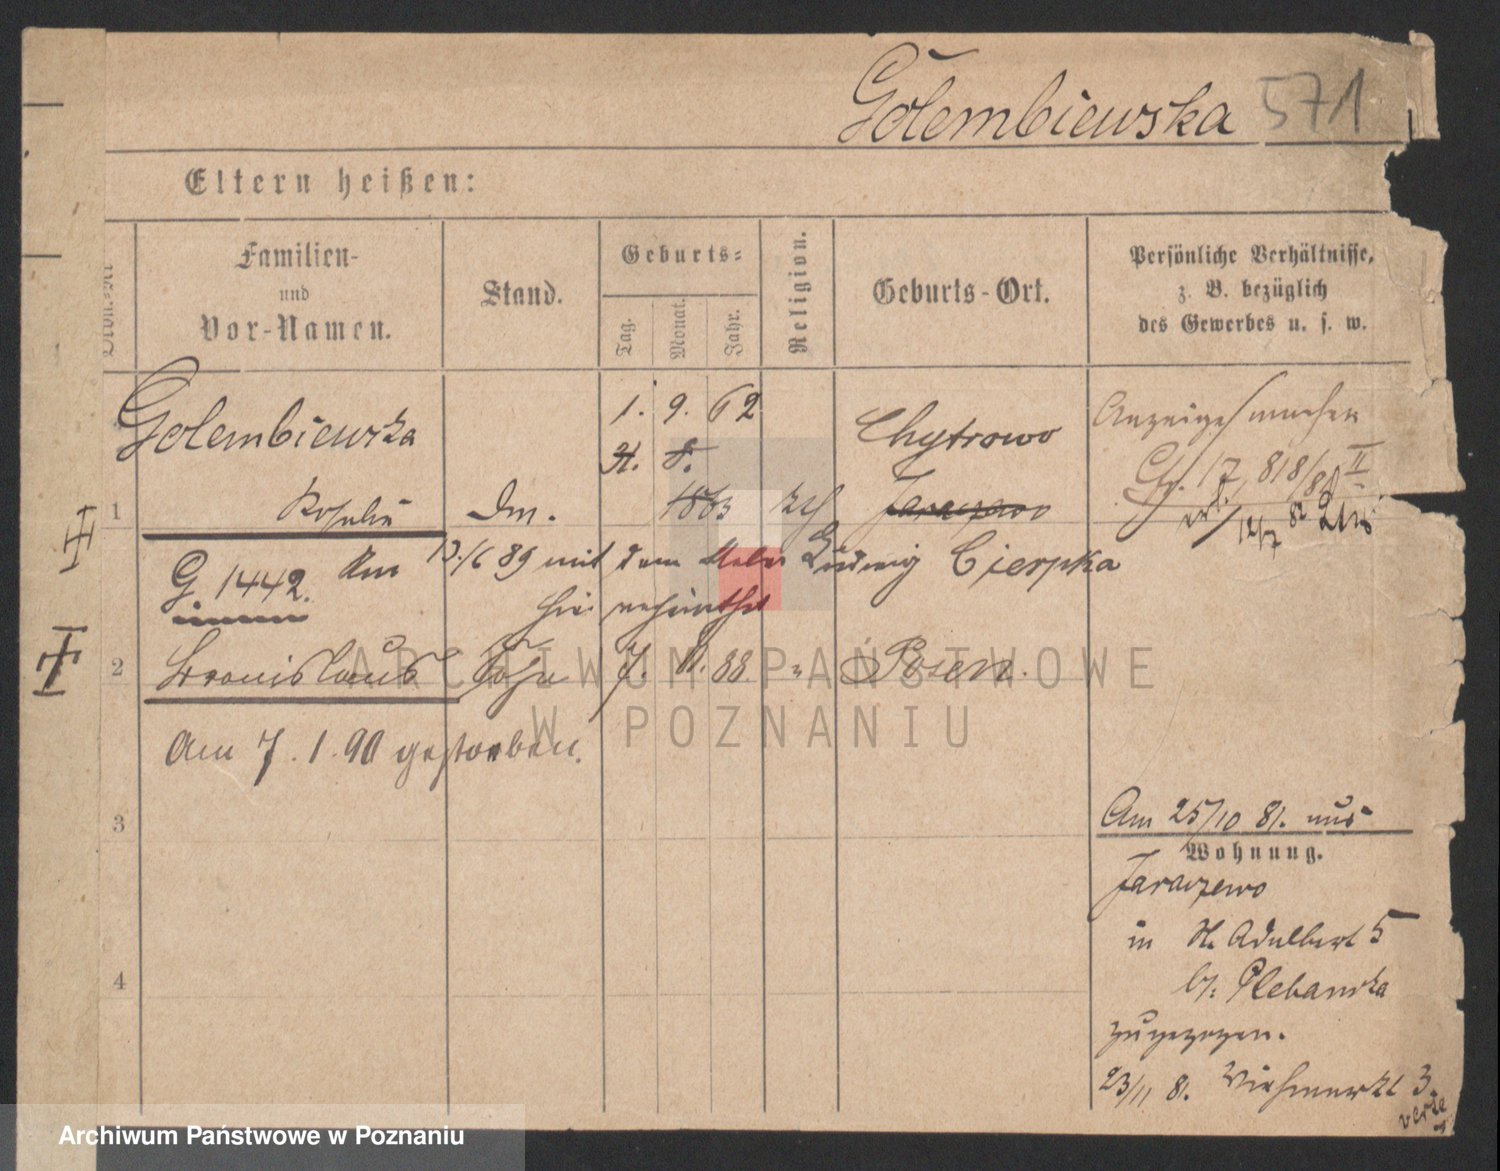 Golembiewska 571
Eltern heißen:
Familien-
und
Vor-Namen.
Stand.
Geburts-
Tag.
Monat.
Jahr.
Religion.
Geburts-Ort.
Persönliche Verhältnisse,
z. B. bezüglich
des Gewerbes u. s. w.
Golembiewska 1. 9. 62 Chytrowo Anzeige machen
8.
1 1863 kth Jaraczewo
G 1442. Am 13./6 89 mit dem Ludwig Cierpka
hier
2 Bronislaus Sohn 7. 88 " Posen.
Am 7. 1. 90 gestorben.
3
Am 25/10 81. aus
Wohnung.
Jaraczewo
in St. Adalbert 5
4
b/: Plebanska
zugezogen.
23/11 81. Viehmarkt 3.
ARCHIWUM PAŃSTWOWE
W POZNANIU
Archiwum Państwowe w Poznaniu